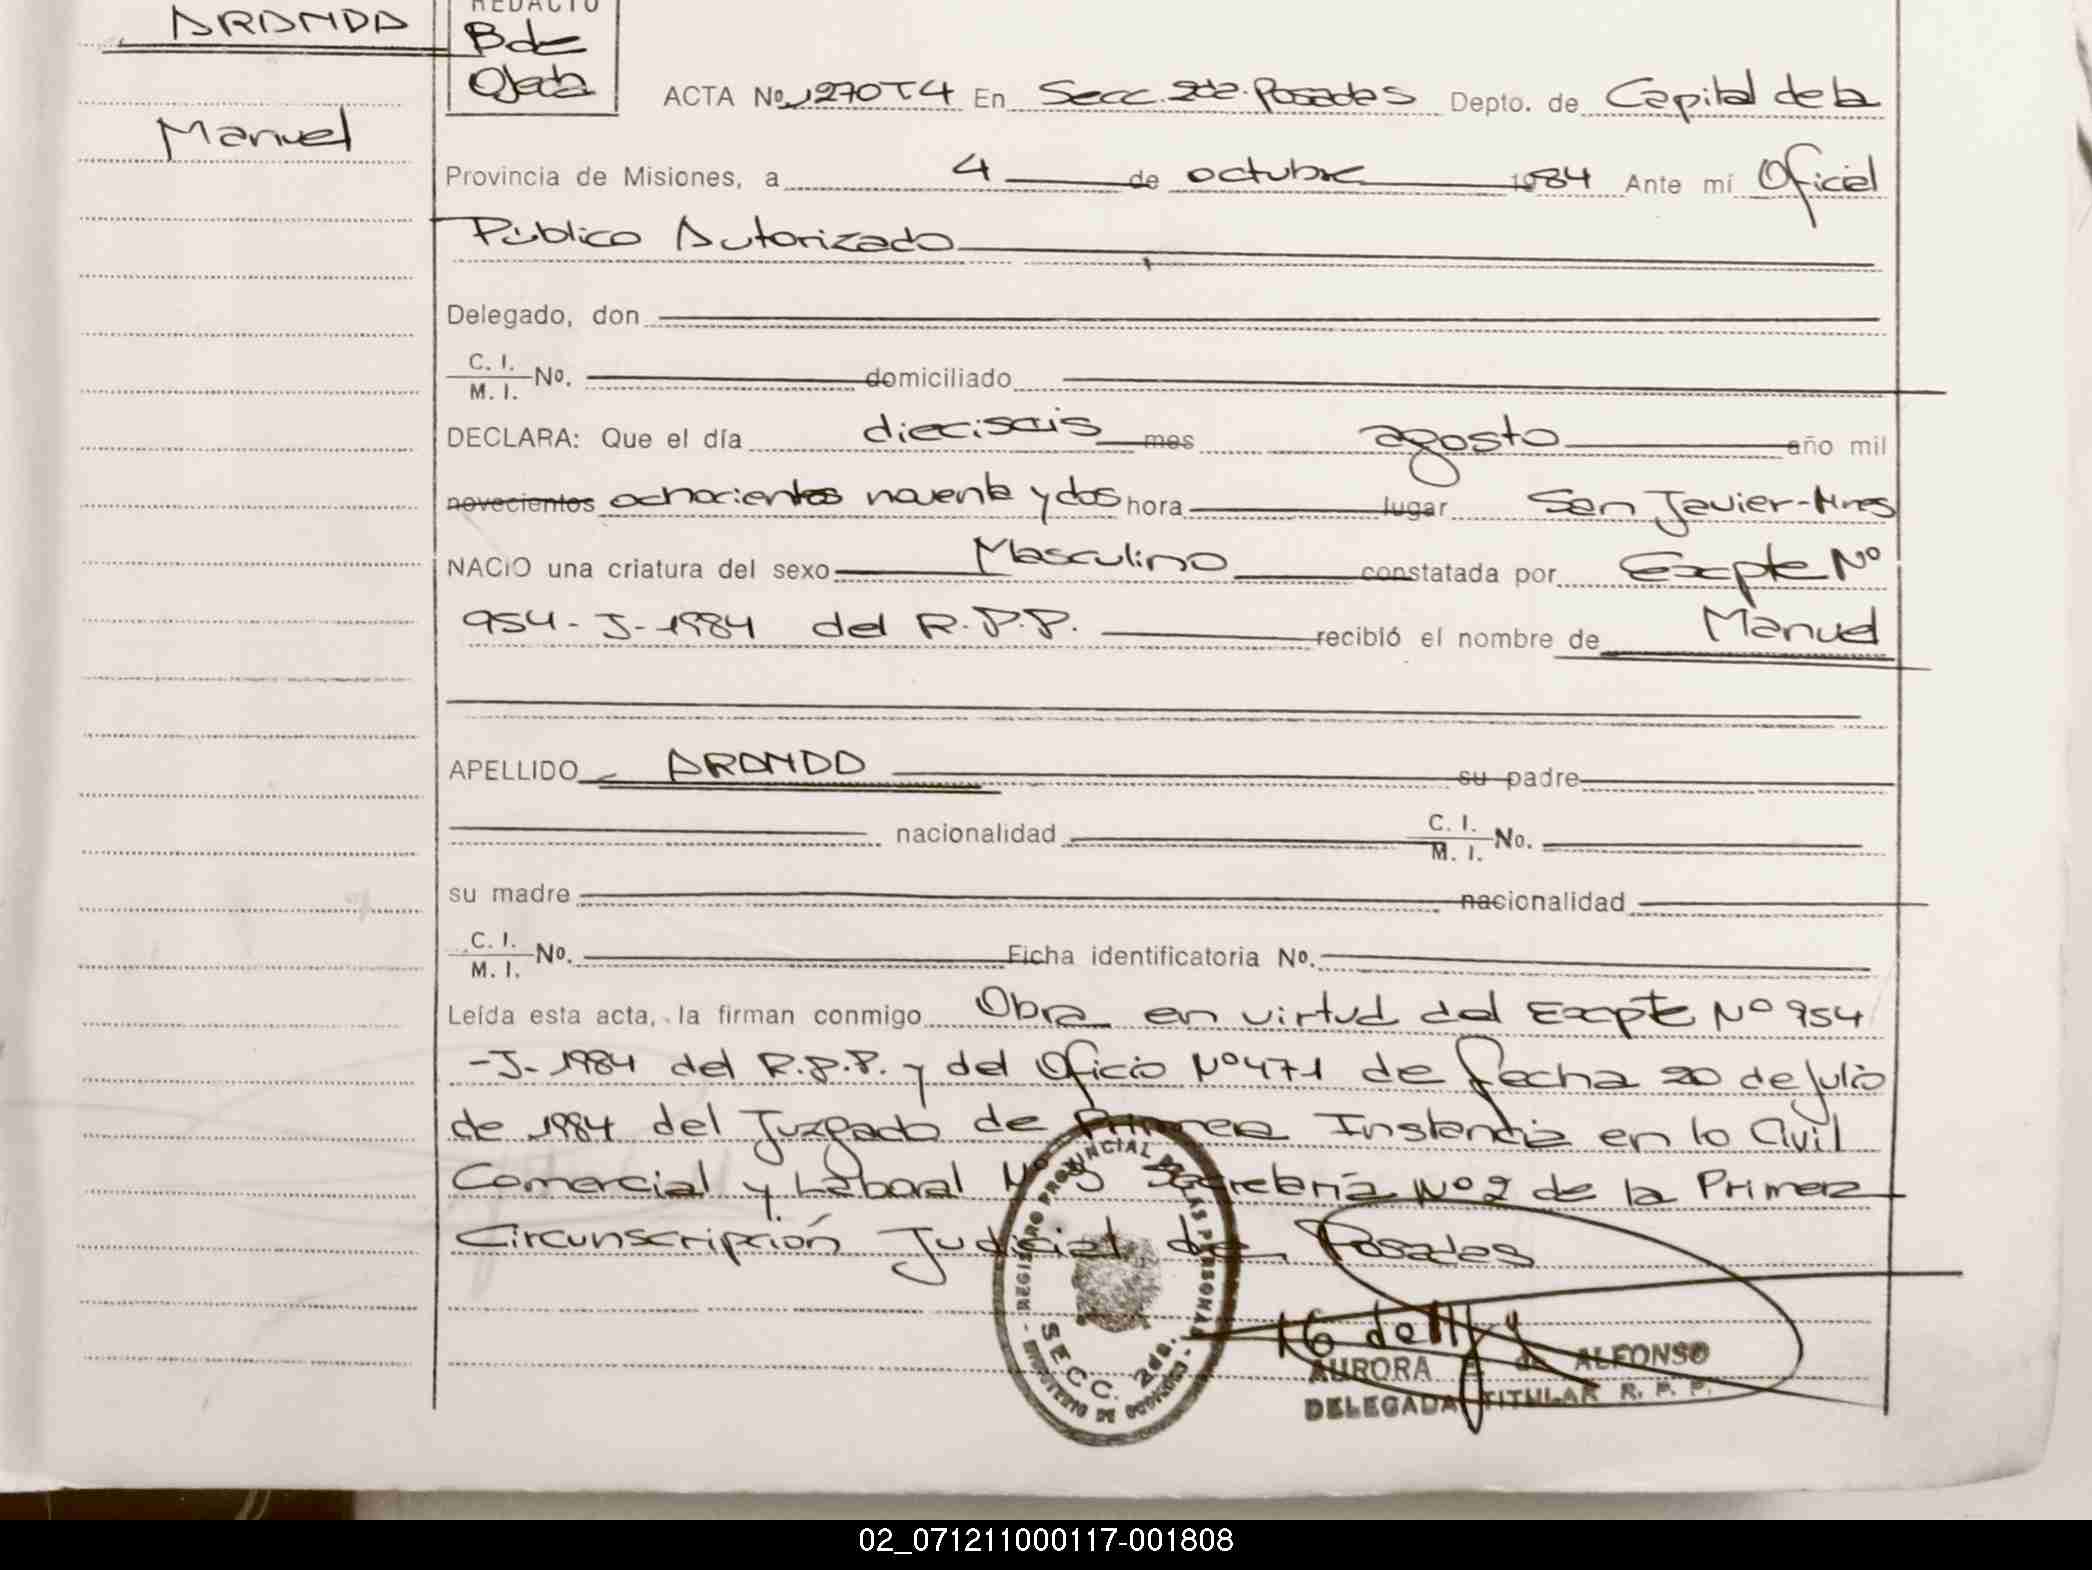 REDACTO
ARANDA
Bde
Ojeda
Manuel
ACTA No. 1270T4 En Secc. 2da. Posadas Depto. de Capital de la
Provincia de Misiones, a 4 de octubre 1984 Ante mí Oficial
Público Autorizado
Delegado, don
C. I.
M. I. No. domiciliado
DECLARA: Que el día dieciseis mes agosto año mil
novecientos ochocientos noventa y dos hora lugar San Javier-Mnes
NACIO una criatura del sexo Masculino constatada por Expte Nº
954-J-1984 del R.P.P. recibió el nombre de Manuel
APELLIDO ARANDA su padre
nacionalidad C. I.
M. I. No.
su madre nacionalidad
C. I.
M. I. No. Ficha identificatoria No.
Leída esta acta, la firman conmigo Obra en virtud del Expte Nº 954
-J-1984 del R.P.P. y del Oficio Nº 471 de fecha 20 de Julio
de 1984 del Juzgado de Primera Instancia en lo Civil
Comercial y Laboral Nº 3 Secretaría Nº 2 de la Primera
Circunscripción Judicial de Posadas
REGISTRO PROVINCIAL DE LAS PERSONAS
SECC. 2da.
MINISTERIO DE GOBIERNO
AURORA de ALFONSO
DELEGADA TITULAR R. P. P.
02_071211000117-001808